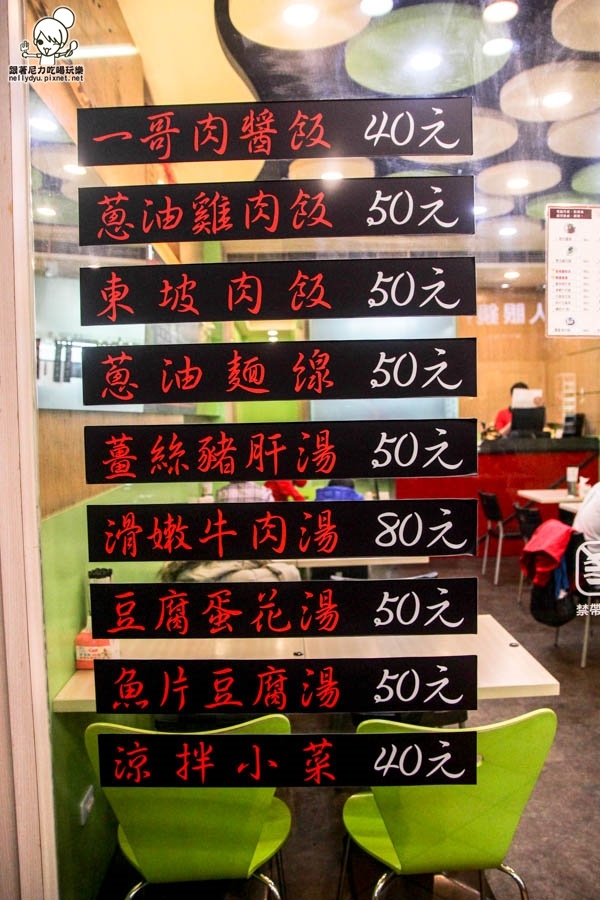 跟著尼力吃喝玩樂
nellydyu.pixnet.net
一哥肉醬飯 40元
蔥油雞肉飯 50元
東坡肉飯 50元
蔥油麵線 50元
薑絲豬肝湯 50元
滑嫩牛肉湯 80元
豆腐蛋花湯 50元
魚片豆腐湯 50元
涼拌小菜 40元
人眼鏡
禁帶